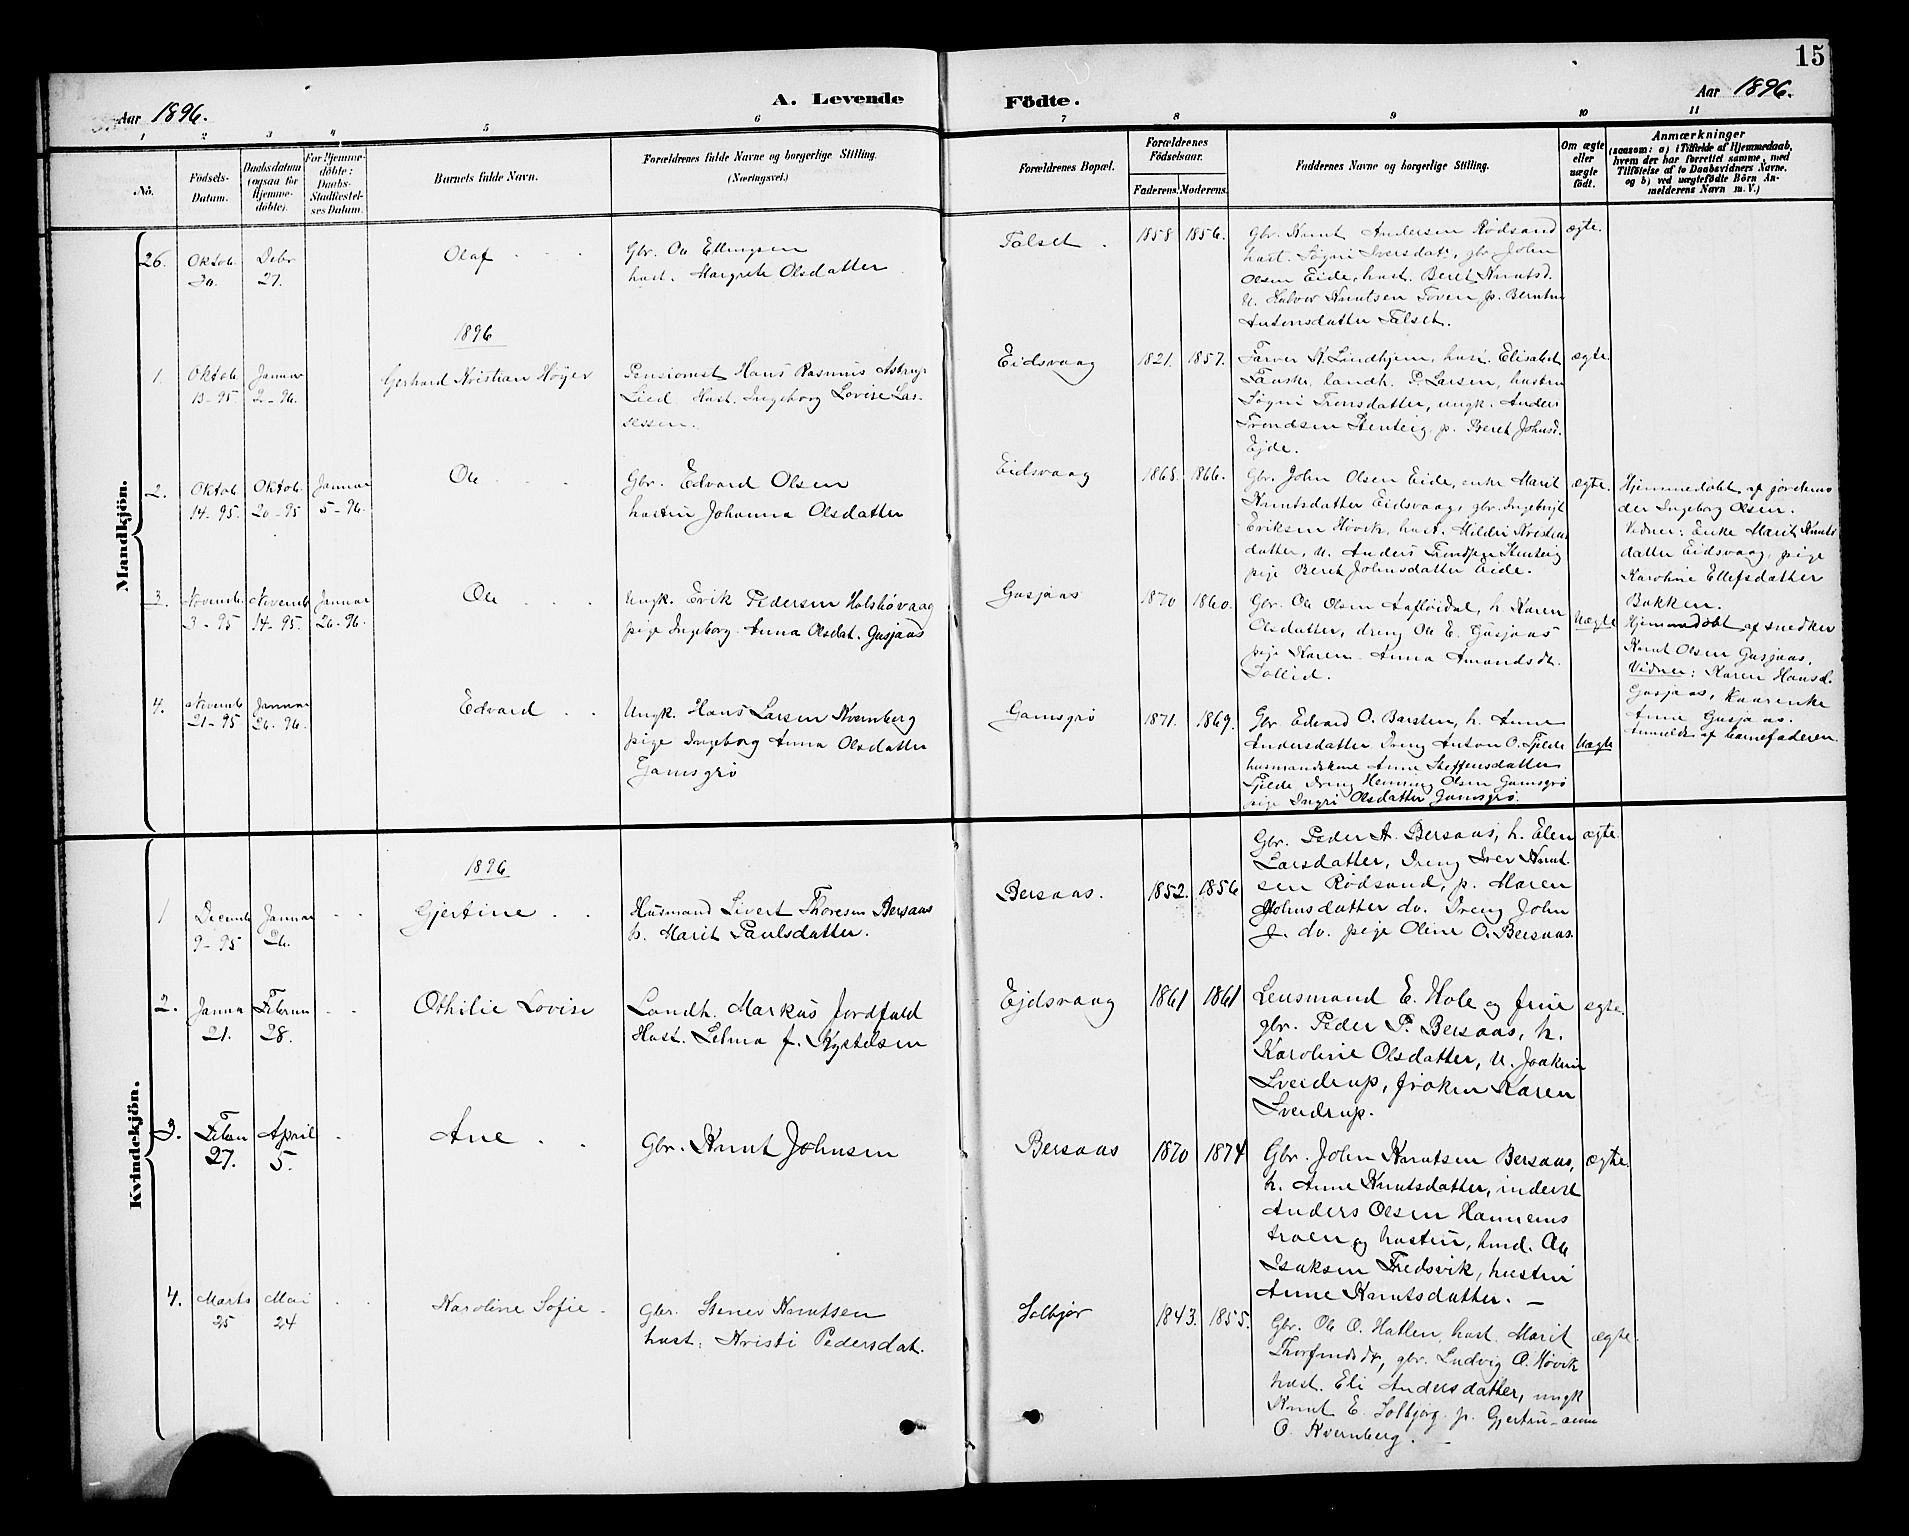 15
Aar 1896.
A. Levende Födte.
Aar 1896.
1 2 3 4 5 6 7 8 9 10 11
No.
Födsels-Datum.
Daabsdatum (ogsaa for Hjemme-döbte).
For Hjemme-döbte: Daabs-Stadfæstel-ses Datum.
Barnets fulde Navn.
Forældrenes fulde Navne og borgerlige Stilling.
(Næringsvei.)
Forældrenes Bopæl.
Forældrenes Födselsaar.
Faderens. Moderens.
Faddernes Navne og borgerlige Stilling.
Om ægte eller uægte födt.
Anmærkninger
(saasom: a) i Tilfælde af Hjemmedaab,
hvem der har forrettet samme, med
Tilföielse af to Daabsvidners Navne,
og b) ved uægtefödte Börn An-
melderens Navn m. V.)
Mandkjön.
26. Oktob. 30. Debr 27. Olaf
Gbr. Ole Ellingsen
hust. Margrete Olsdatter
Talset. 1858 1856.
Gbr. Knut Andersen Rødsand
hust. Søgni Iversdat., gbr John
Olsen Eide, hust. Beret Knutsd.
U. Halvor Knutsen Toven p. Berntine
Antonsdatter Talset.
ægte.
1896
1. Oktob. 13-95 Januar 2-96. Gerhard Kristian Høyer
Pensionist Hans Rasmus Astrup
Lied Hust. Ingeborg Lovise Las-
sessen.
Eidsvaag 1821. 1857.
Farver K. Lindhjem, hust. Elisabet
Fauske, landh. P. Larsen, hustru
Søgni Tronsdatter, ungk. Anders
Trondsen Stenteig, p. Beret Johnsd.
Ejde.
ægte.
2. Oktob. 14-95. Oktob. 20-95 Januar 5-96. Ole
Gbr. Edvard Olsen
hustru Johanna Olsdatter
Eidsvaag 1868. 1866.
Gbr. John Olsen Eide, enke Marit
Knutsdatter Eidsvaag, gbr. Ingebrigt
Eriksen Høvik, hust. Mildri Kristians
datter, U. Anders Trondsen Stenteig
pige Beret Johnsdatter Eide.
ægte.
Hjemmedøbt af jordemo
der Ingeborg Olsen.
Vidner: Enke Marit Knuts
datter Eidsvaag, pige
Karoline Ellefsdatter
Bakken.
3. Novemb. 3-95 Novemb. 14-95. Januar 26-96. Ole
Ungk. Erik Pedersen Holshøvaag
pige Ingeborg Anna Olsdat. Gusjaas
Gusjaas 1870 1860.
Gbr. Ole Olsen Aafløidal, h. Karen
Olsdatter, dreng Ole E. Gusjaas
pige Karen Anna Amandsdt.
Sollid.
Uægte
Hjemmedøbt af snedker
Knut Olsen Gusjaas,
Vidner: Karen Hansd.
Gusjaas, Kaarenke
Anne Gusjaas.
4. Novemb. 21-95 Januar 26-96. Edvard
Ungk. Hans Larsen Kvernberg
pige Ingeborg Anna Olsdatter
Gamsgrø
Gamsgrø 1871. 1869.
Gbr. Edvard O. Barsten, h. Anne
Andersdatter Dreng Anton O. Tjelde
husmandskone Anne Steffensdatter
Tjelde Dreng Henning Olsen Gamsgrø
pige Ingri Olsdatter Gamsgrø.
Uægte
Anmeldt af barnefaderen
Kvindekjön.
1896
1 Decemb. 9-95 Januar 26. Gjertine
Husmand Sivert Thoresen Bersaas
h. Marit Paulsdatter.
Bersaas. 1852. 1856
Gbr. Peder A. Bersaas, h. Elen
Larsdatter, Dreng Iver Knut-
sen Rødsand, p. Maren
Johnsdatter do. Dreng John
J. do. pige Oline O. Bersaas.
ægte.
2. Janua 21. Februa 28. Othilie Lovise
Landh. Markus Jordfald
Hust. Selma f. Kystelsen
Ejdsvaag 1861 1861
Lensmand E. Hole og frue
gbr. Peder P. Bersaas, h.
Karoline Olsdatter, U. Joakim
Sverdrup, frøken Karen
Sverdrup.
ægte.
3. Febru 27. April 5. Ane
Gbr. Knut Johnsen
Bersaas 1870 1874
Gbr. John Knutsen Bersaas,
h. Anne Knutsdatter, inderst
Anders Olsen Hannems
traen og hustru, hmd. Ole
Isaksen Fredsvik, hustru
Anne Knutsdatter. —
ægte.
4. Marts 25 Mai 24 Karoline Sofie
Gbr. Stener Knutsen
hust: Kristi Pedersdat.
Solbjør 1843. 1855.
Gbr. Ole O. Hatlen, hust. Marit
Thorfindsdt, gbr. Ludvig O. Høvik
hust. Eli Andersdatter, ungk
Knut E. Solbjørg p. Gjertru-anna
O. Kvernberg. —
ægte.